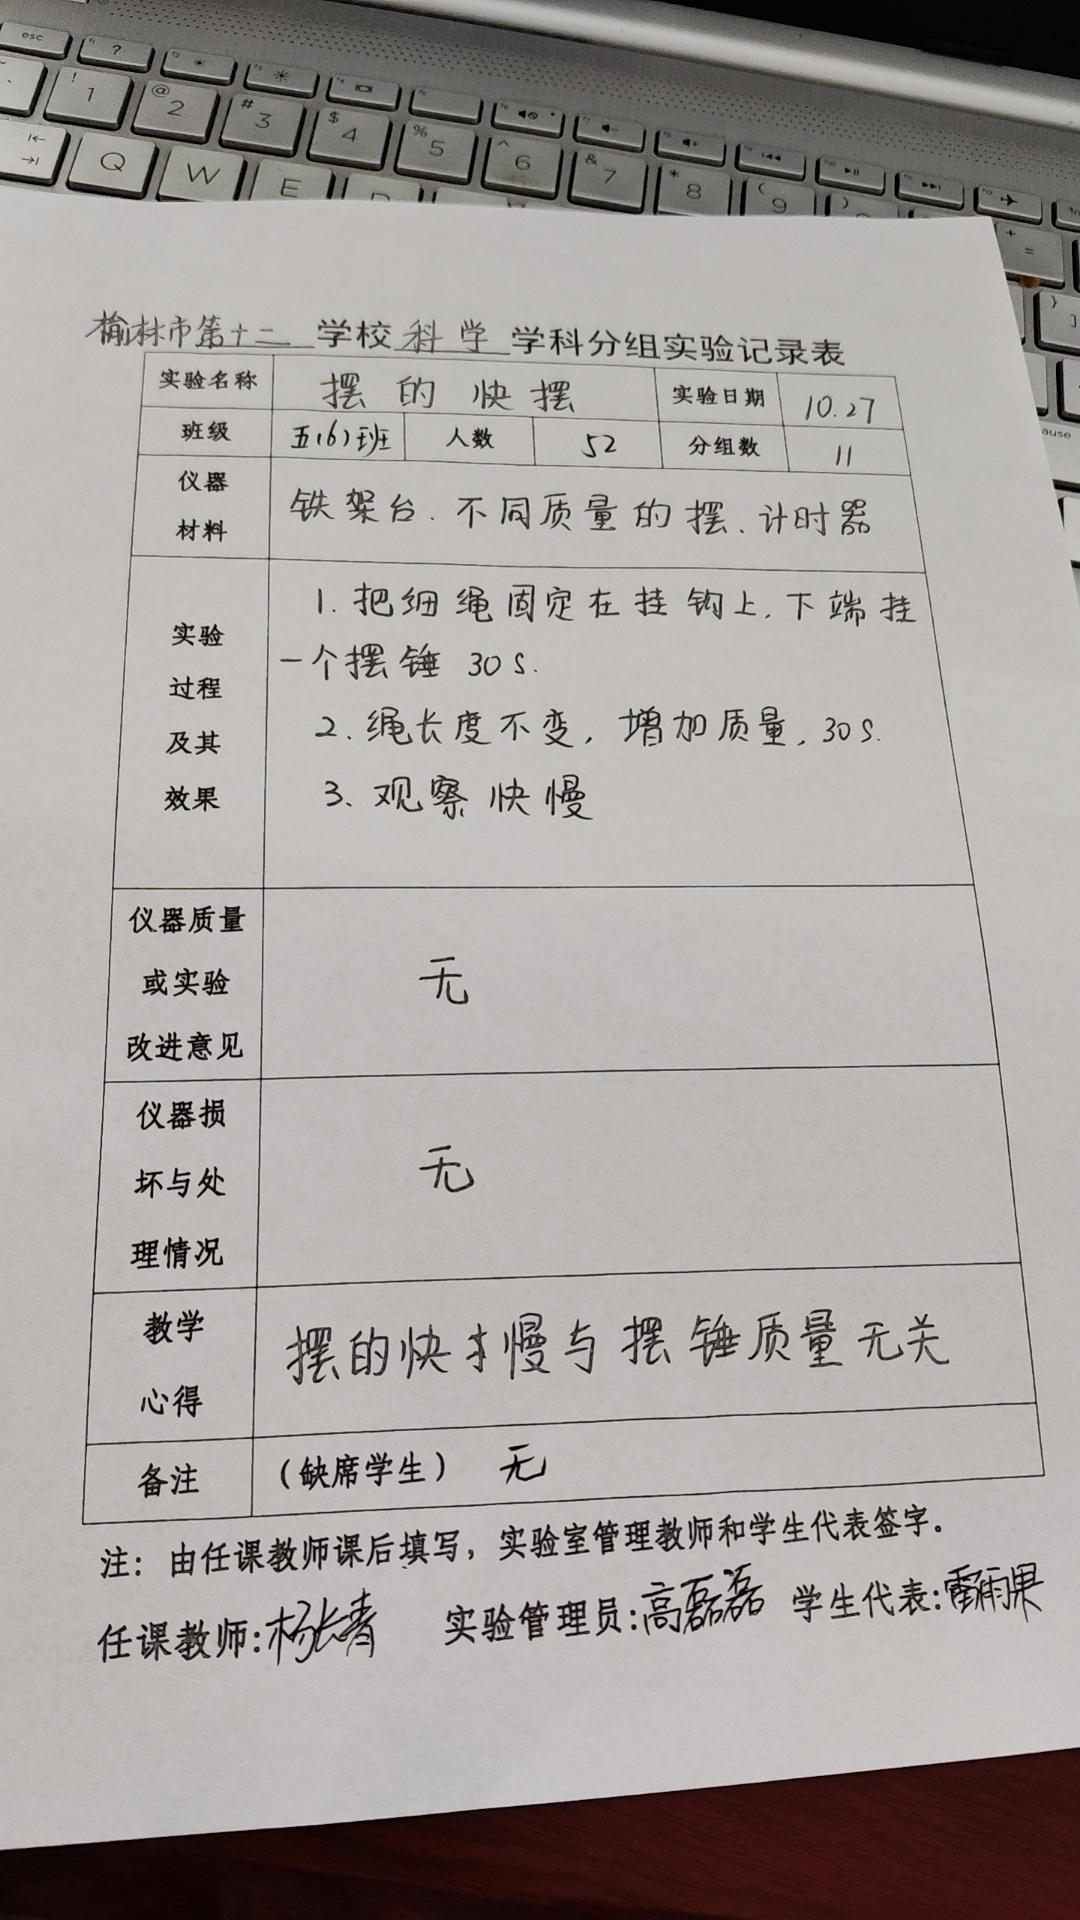 esc
? 
! 1 @ 2 # 3 $ 4 % 5 ^ 6 & 7 * 8 ( 9 )
+ =
Q W E
}
]
ause
榆林市第十二学校科学学科分组实验记录表
实验名称 摆的快摆 实验日期 10.27
班级 五(6)班 人数 52 分组数 11
仪器
材料
铁架台、不同质量的摆、计时器
实验
过程
及其
效果
1. 把细绳固定在挂钩上,下端挂
一个摆锤 30S.
2. 绳长度不变,增加质量,30S.
3、观察快慢
仪器质量
或实验
改进意见
无
仪器损
坏与处
理情况
无
教学
心得
摆的快慢与摆锤质量无关
备注 (缺席学生) 无
注:由任课教师课后填写,实验室管理教师和学生代表签字。
任课教师:杨长青 实验管理员:高磊磊 学生代表: